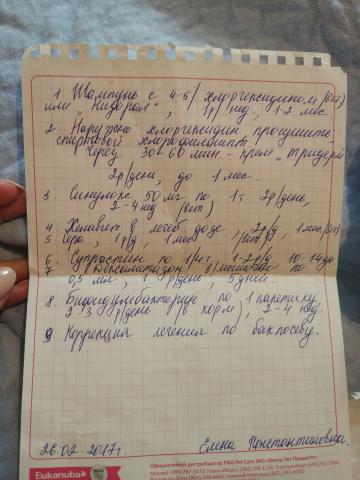 1. Шампунь с 4-5% хлоргексидином (вет)
или "Низорал", 1р/нед, 1-2 мес.
2. Наружно: хлоргексидин, просушить,
спиртовой хлорофиллипт,
через 30-60 мин - крем "Тридерм"
2р/день, до 1 мес.
3. Синулокс 50 мг по 1т. 2р/день,
2-4 нед. (вет.)
4. Хелавит в лечеб. дозе, 2р/д, 1 мес
5. Сера, 1р/д, 1 мес (вет)
6. Супрастин по 1/4т, 1-2р/д, 10-14дн
7. Дексаметазон в/мышечно по
0,5 мл, 1 р/день, 5 дней.
8. Бифидумбактерин по 1 пакетику
2-3 р/день (в корм), 2-4 нед.
9. Коррекция лечения по бакпосеву.
26.02.2017г. Елена Константиновна.
Eukanuba
Официальный дистрибьютор P&G Pet Care ЗАО «Валта Пет Продактс»: